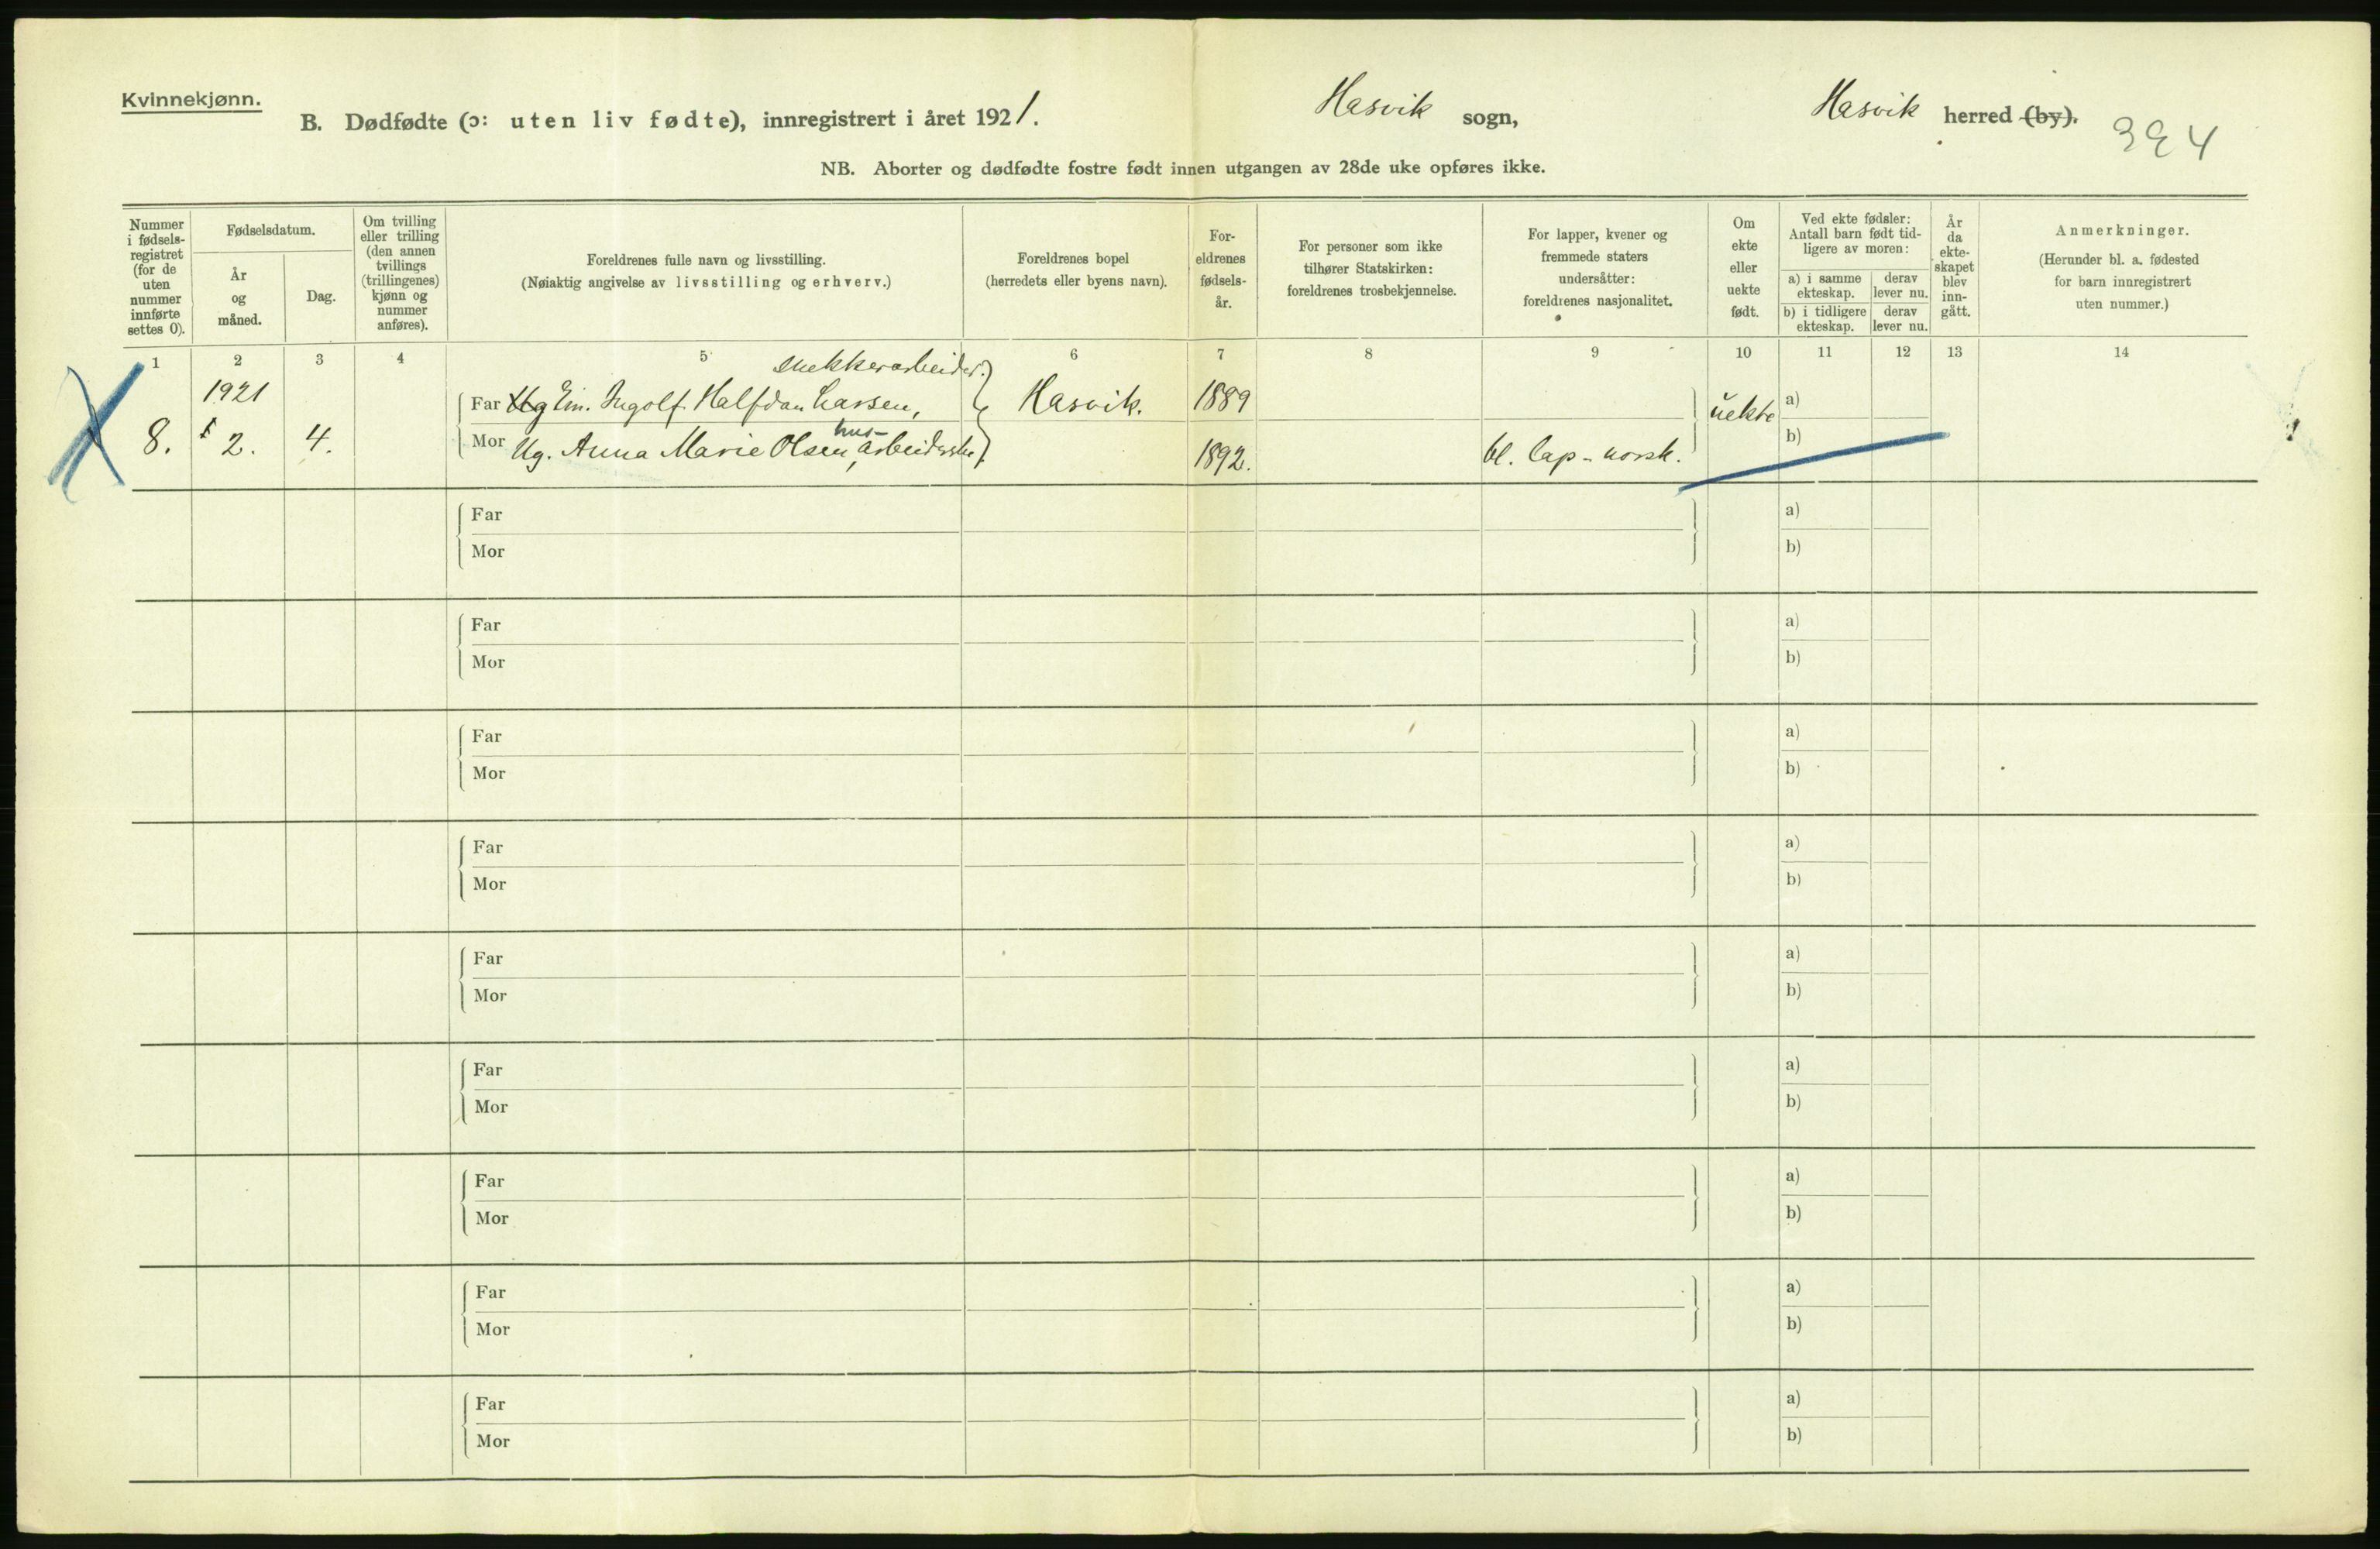 Kvinnekjønn.
B. Dødfødte (ɔ: uten liv fødte), innregistrert i året 1921. Hasvik sogn, Hasvik herred (by).
394
NB. Aborter og dødfødte fostre født innen utgangen av 28de uke opføres ikke.
Nummer i fødsels- registret (for de uten nummer innførte settes 0).
Fødselsdatum.
År og måned.
Dag.
Om tvilling eller trilling (den annen tvillings (trillingenes) kjønn og nummer anføres).
Foreldrenes fulle navn og livsstilling.
(Nøiaktig angivelse av livsstilling og erhverv.)
Foreldrenes bopel
(herredets eller byens navn).
For- eldrenes fødsels- år.
For personer som ikke tilhører Statskirken: foreldrenes trosbekjennelse.
For lapper, kvener og fremmede staters undersåtter: foreldrenes nasjonalitet.
Om ekte eller uekte født.
Ved ekte fødsler: Antall barn født tid- ligere av moren:
a) i samme ekteskap.
derav lever nu.
b) i tidligere ekteskap.
derav lever nu.
År da ekte- skapet blev inn- gått.
Anmerkninger.
(Herunder bl. a. fødested for barn innregistrert uten nummer.)
1 2 3 4 5 6 7 8 9 10 11 12 13 14
snekkerarbeider.
1921 Far Ug Em. Ingolf Halfdan Larsen, Hasvik. 1889 uekte a)
hus-
8. 2. 4. Mor Ug. Anna Marie Olsen, arbeiderske 1892. bl. lap-norsk. b)
Far a)
Mor b)
Far a)
Mor b)
Far a)
Mor b)
Far a)
Mor b)
Far a)
Mor b)
Far a)
Mor b)
Far a)
Mor b)
Far a)
Mor b)
Far a)
Mor b)